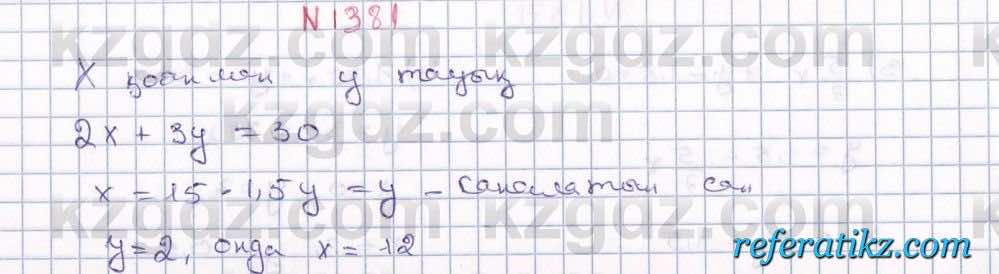 N 1381
X қоян мен y тауық
2x + 3y = 30
x = 15 - 1,5y = y - саналатын сан
y = 2, онда x = 12
referatikz.com
kzgdz.com kzgdz.com
kzgdz.com
kzgdz.com kzgdz.com